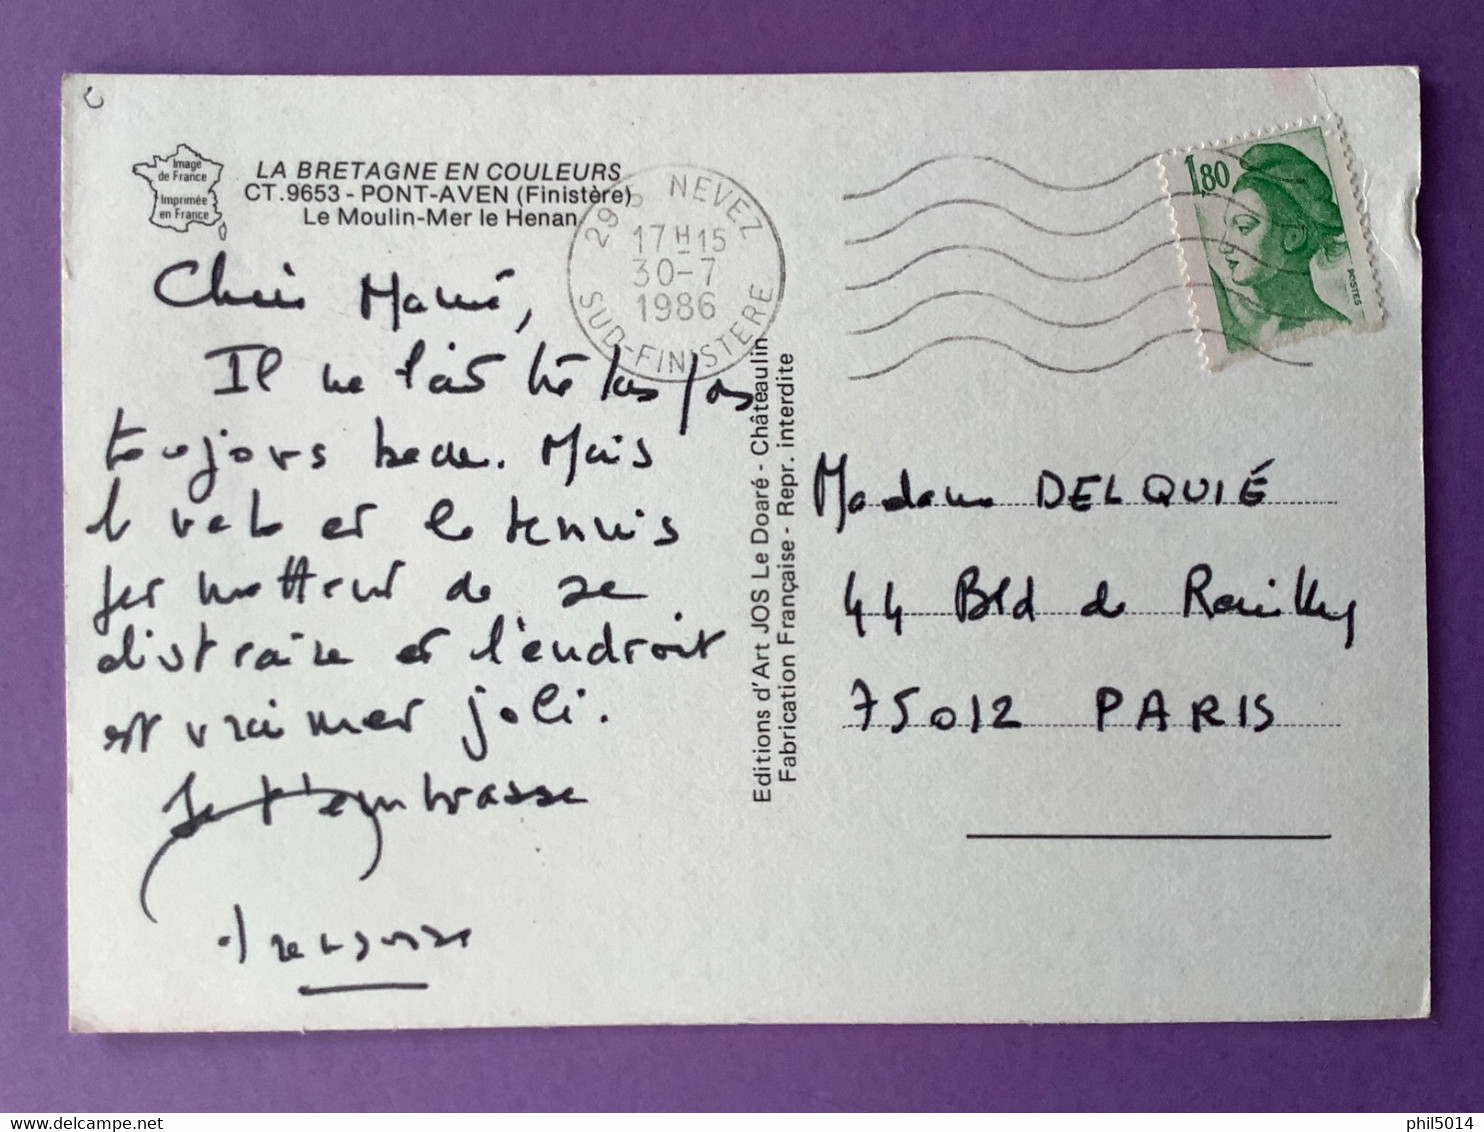 Image
de France
Imprimée
en France
LA BRETAGNE EN COULEURS
CT.9653 - PONT-AVEN (Finistère)
Le Moulin-Mer le Henan
NEVEZ
17 H 15
30-7
1986
SUD-FINISTERE
1,80
POSTES
Il ne fait hélas pas
toujours beau. Mais
le velo et le tennis
permettent de se
distraire et l'endroit
est vraiment joli.
Je t'embrasse
Editions d'Art JOS Le Doaré - Châteaulin
Fabrication Française - Repr. interdite
Madame DELQUIÉ
44 Bld de Reuilly
75012 PARIS
phil5014